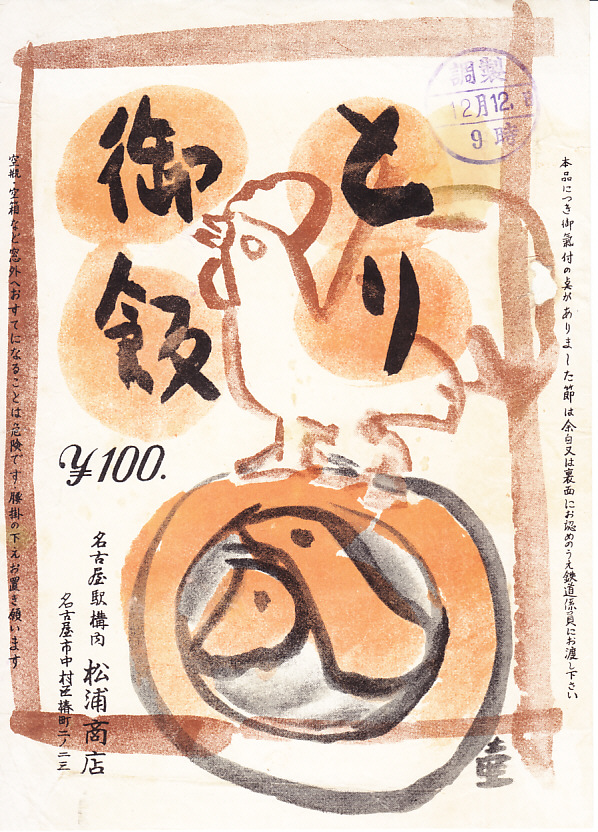 調製
12月12.
9時
とり
御飯
¥100.
本品につき御氣付の点がありました節は余白又は裏面にお認めのうえ鉄道係員にお渡し下さい
名古屋駅構内 松浦商店
名古屋市中村区椿町二ノ二三
空瓶、空箱など窓外へおすてになることは危険です 腰掛の下えお置き願います
壷